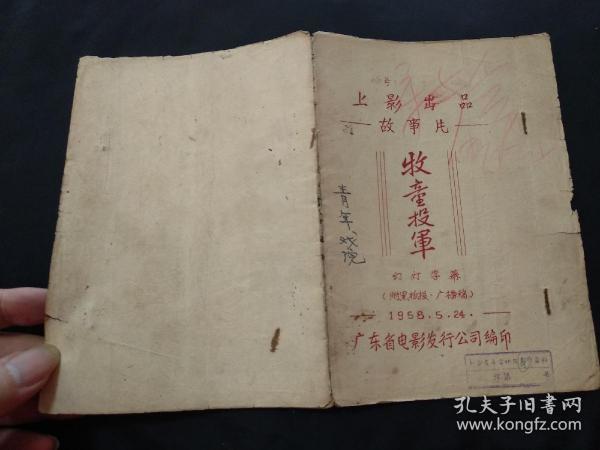 上影出品
故事片
牧童投軍
幻灯字幕
1958.5.24.
广东省电影发行公司编印
青年戏院
孔夫子旧书网
www.kongfz.com